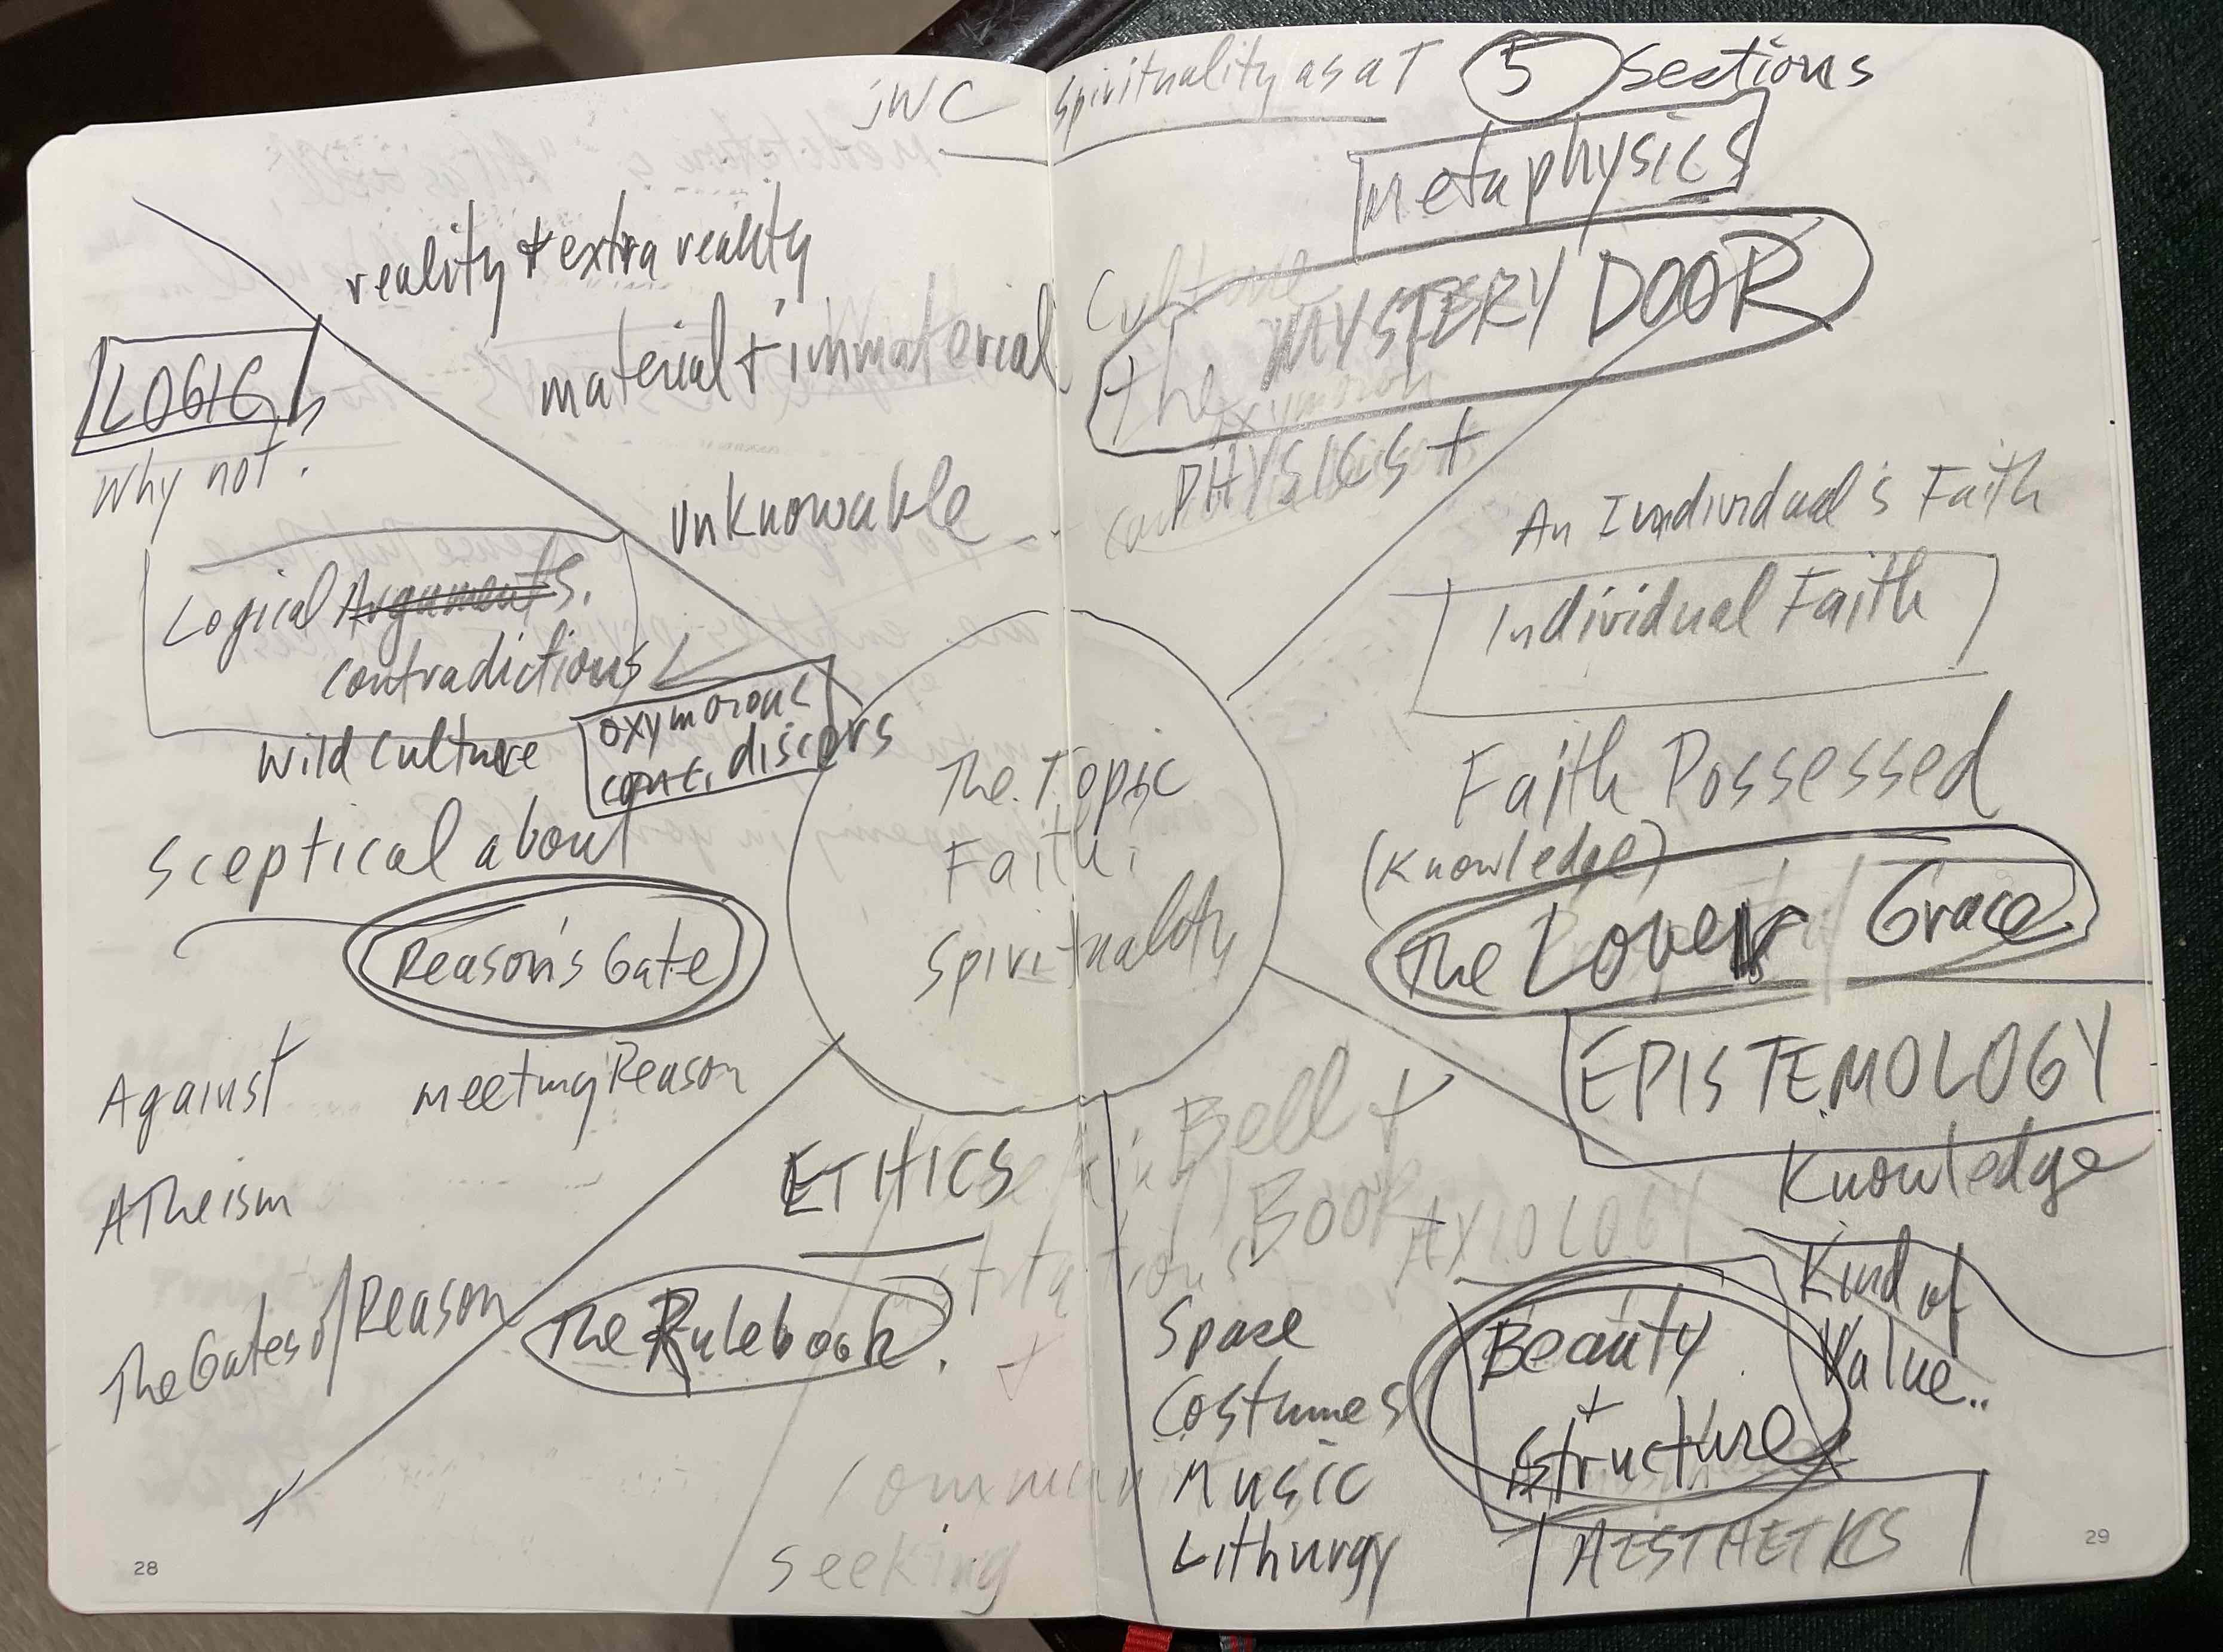 JWC Spirituality as a T 5 Sections
Metaphysics
The MYSTERY DOOR
Culture
oxymoron
PHYSICS +
reality + extra reality
material + immaterial
Unknowable
LOGIC
Why not.
Logical Arguments.
contradictions
Wild Culture
oxymoronc
cont. discors
Sceptical about
Reason's Gate
Against
meeting Reason
ATheism
The Gates of Reason
The Topic
Faith.
Spirituality
An Inndividual's Faith
Individual Faith
Faith Possessed
(Knowledge)
The Lover / Grace
EPISTEMOLOGY
Knowledge
Kind of
Value..
ETHICS
The Rulebook.
seeking
Bell +
Book
AXIOLOGY
Space
Costumes
Music
Lithurgy
Beauty
+
Structure
AESTHETICS
28
29